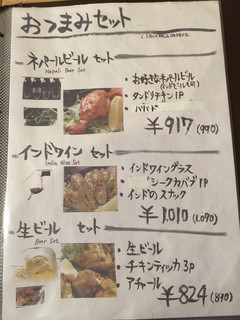 おつまみセット
ネパールビール セット
Nepali Beer Set
・お好きなネパールビール
・タンドリチキン1P
・パパド
￥917 (990)
インドワイン セット
India Wine Set
・インドワイングラス
・シークカバブ1P
・インドのスナック
￥1,010 (1,090)
生ビール セット
Beer Set
・生ビール
・チキンティッカ3P
・アチャール
￥824 (890)